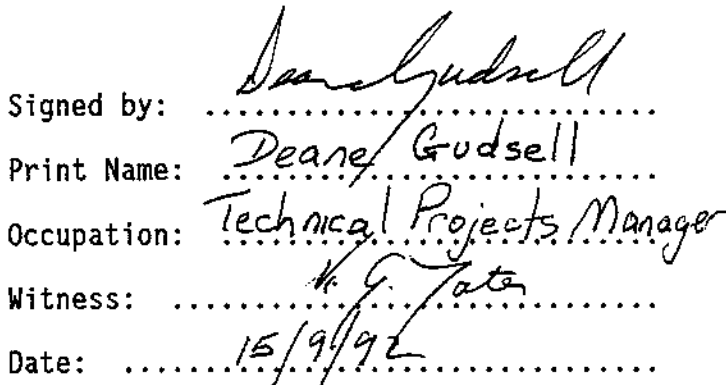 Signed by: Deane Gudsell
Print Name: Deane Gudsell
Occupation: Technical Projects Manager
Witness: G. Tate
Date: 15/9/92